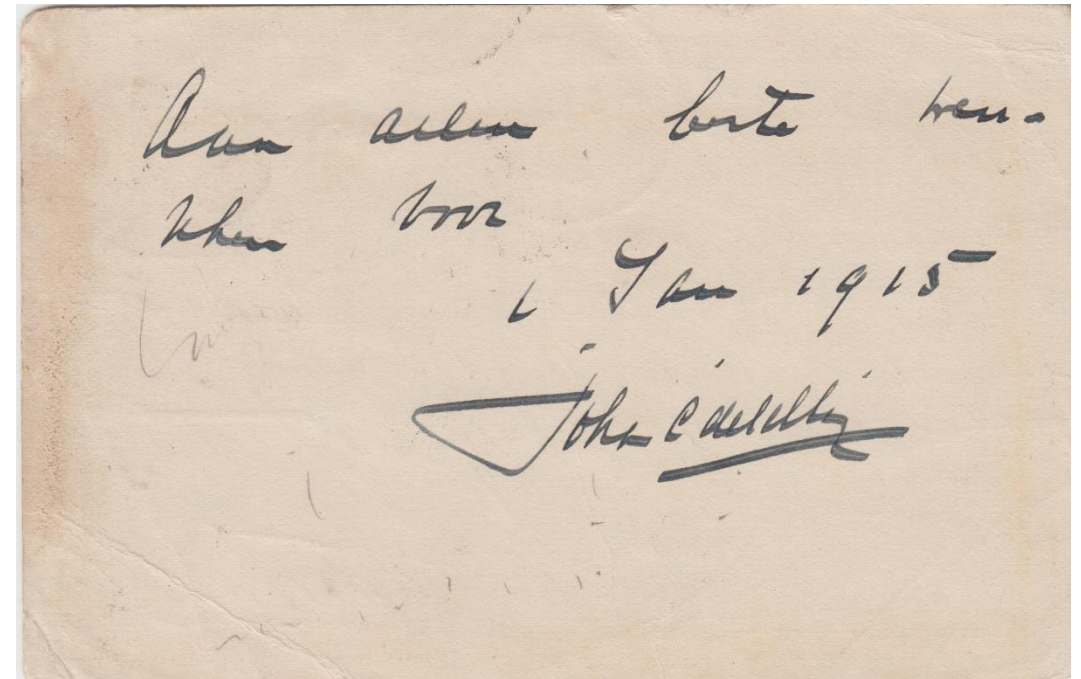 Aan allen beste wen-
schen voor
1 Jan 1915
John